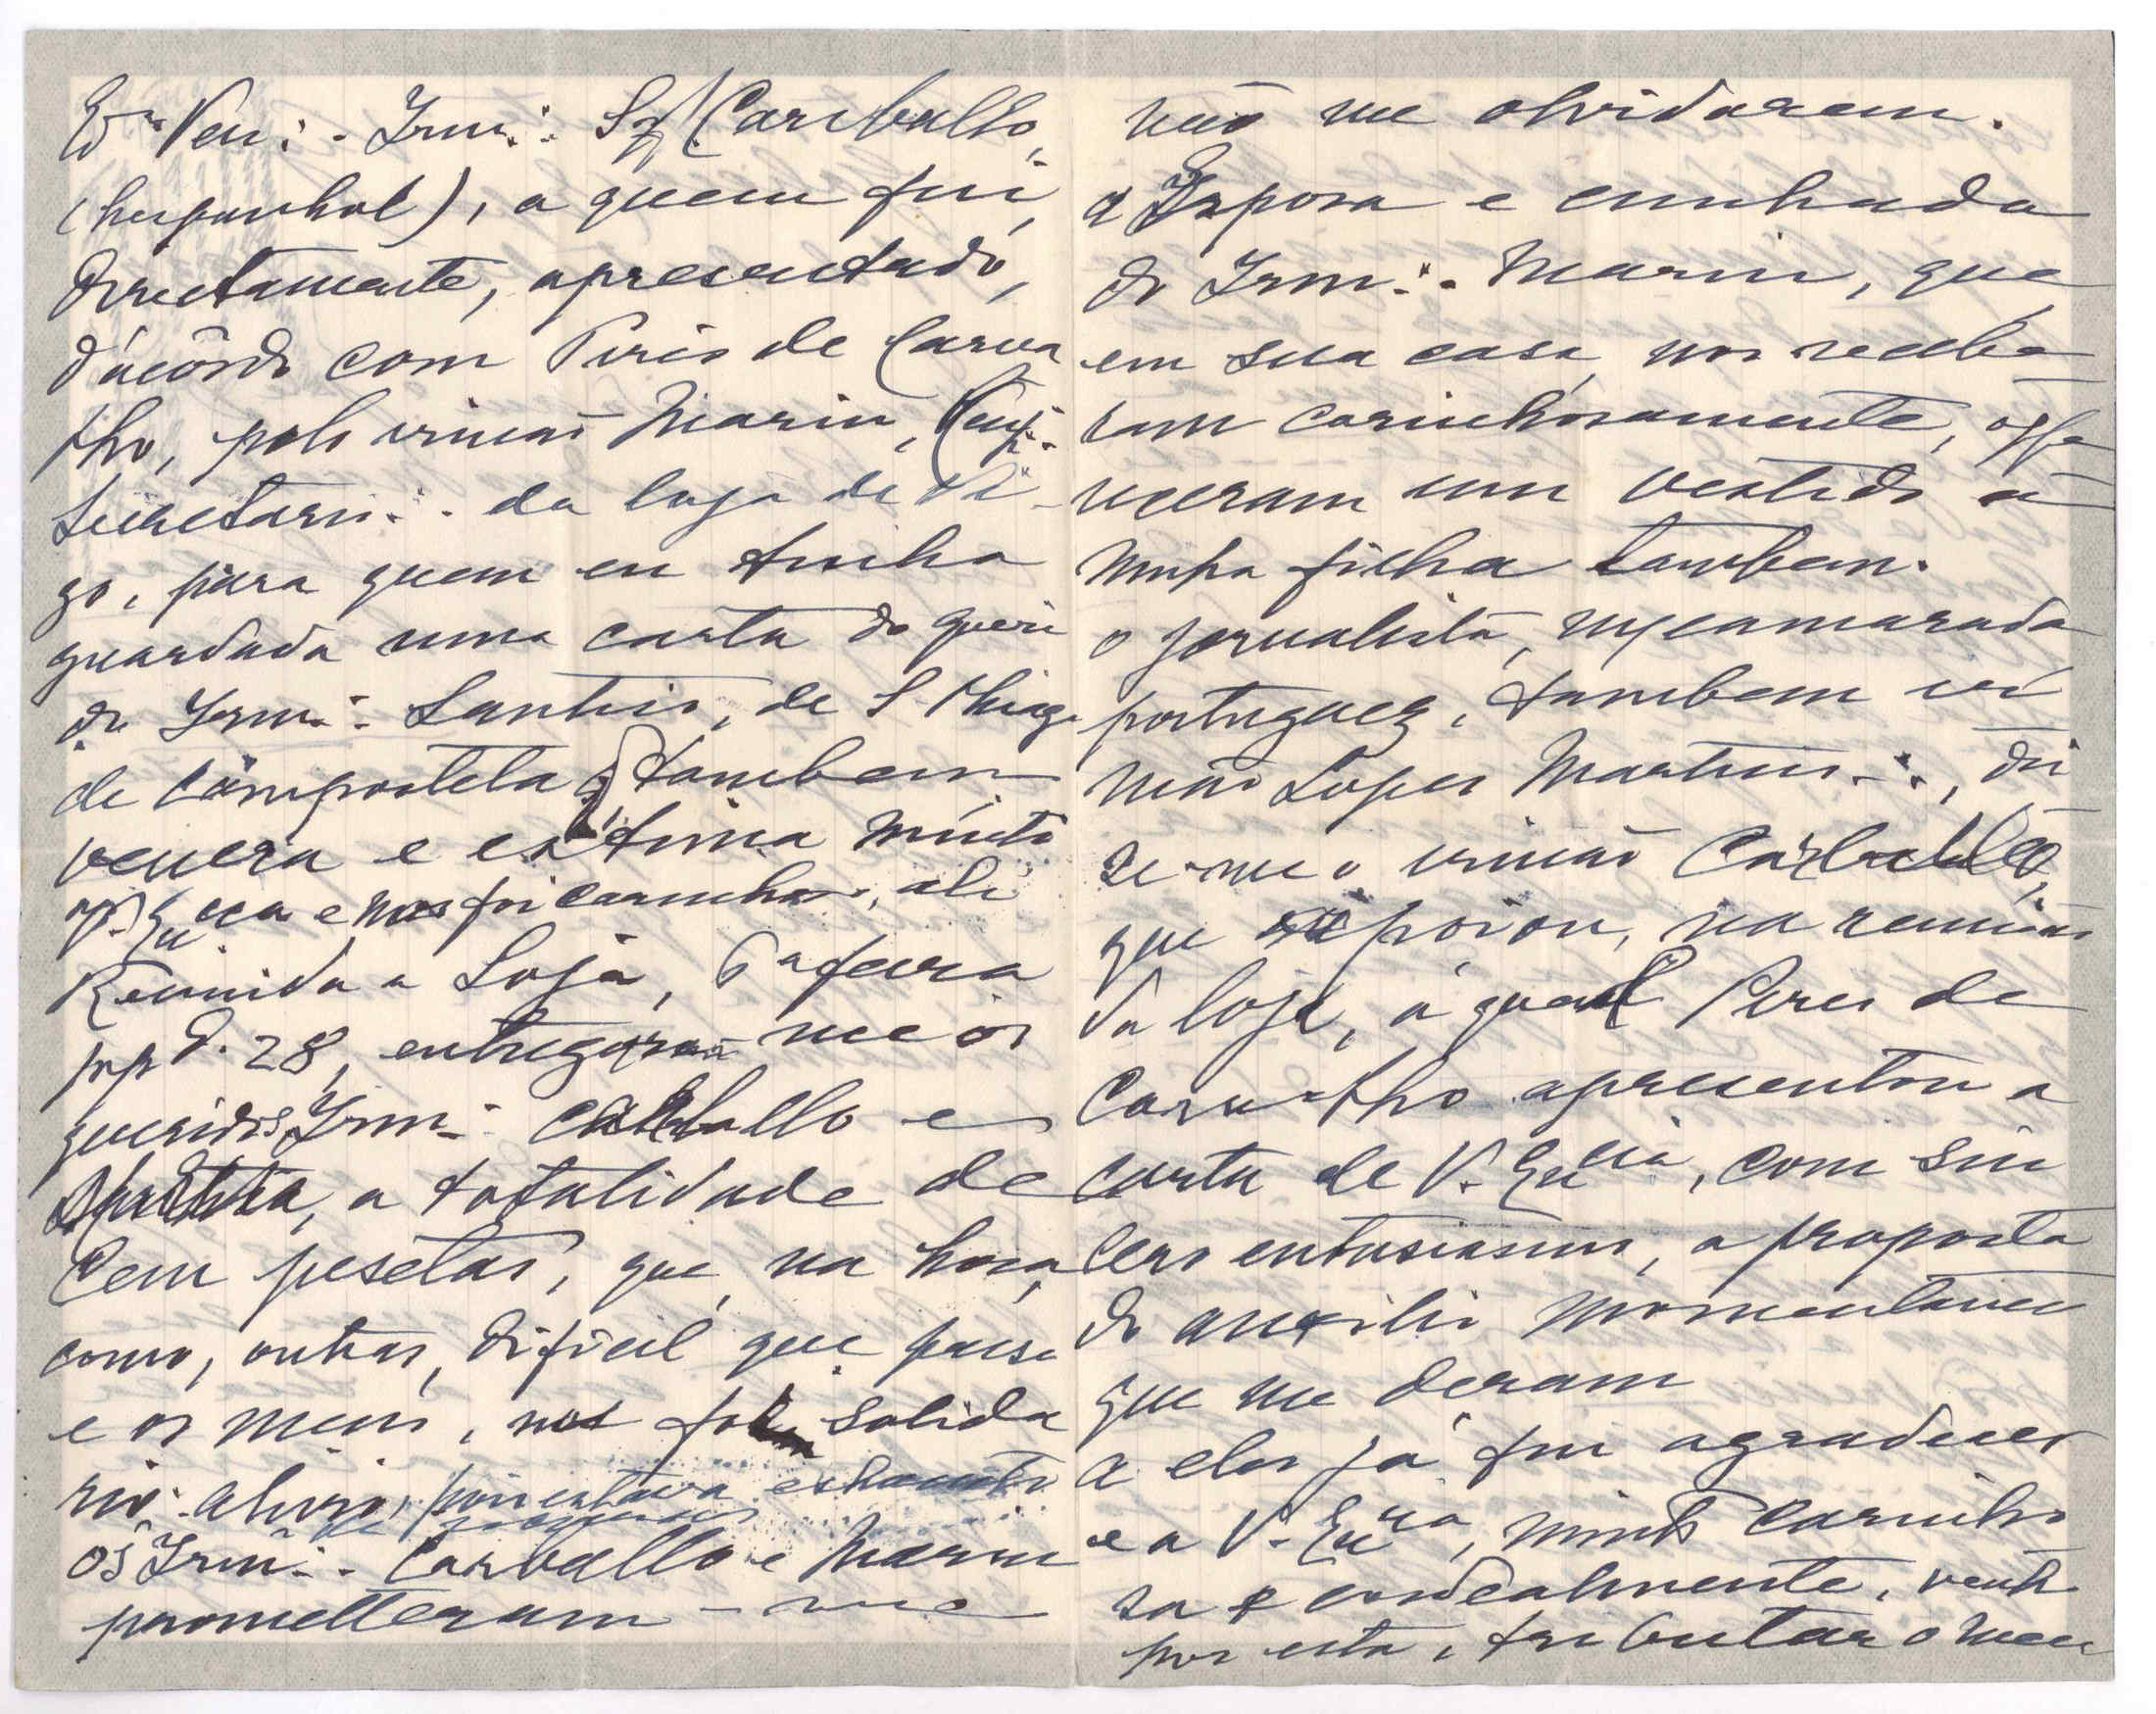 Ven∴ Irm∴ Carballo,
(hespanhol), a quem fui,
directamente, apresentado,
d'acôrdo com Pires de Carva
lho, pelo irmão Marin,
Secretari∴ da loja de Vi-
go, para quem eu tinha
guardada uma carta do queri
do Irm∴ Santos, de S. Thiago
de Compostela, q tambem
venera e estima muito
V. Excia e nos foi carinhoso, ali
Reunida a Loja, 6ª feira
pp d. 28, entregaram-me os
queridos Irm∴ Carballo e
a totalidade de
Cem pesetas, que, na hora,
como, outras, dificil que passo
e os meus, nos foi solida
rio alivio, pois estava exhausto
de recursos
Os Irm∴ Carballo e Marin
prometteram-me
não me olvidarem.
A Esposa e cunhada
do Irm∴ Marin, que,
em sua casa, nos recebe-
ram carinhosamente, offe
receram um vestido á
minha filha tambem.
O jornalista, meu camarada
portuguez, tambem ir
mão Lopes Martins∴, dis
se-me o irmão Carballo,
que apoiou, na reunião
da loja, á qual Pires de
Carvalho apresentou a
carta de V. Excia, com sin
cero entusiasmo, a proposta
do auxilio momentaneo
que me deram
A eles já fui agradecer
e a V. Excia, muito carinho
sa e cordealmente, venho
por esta, tributar o meu